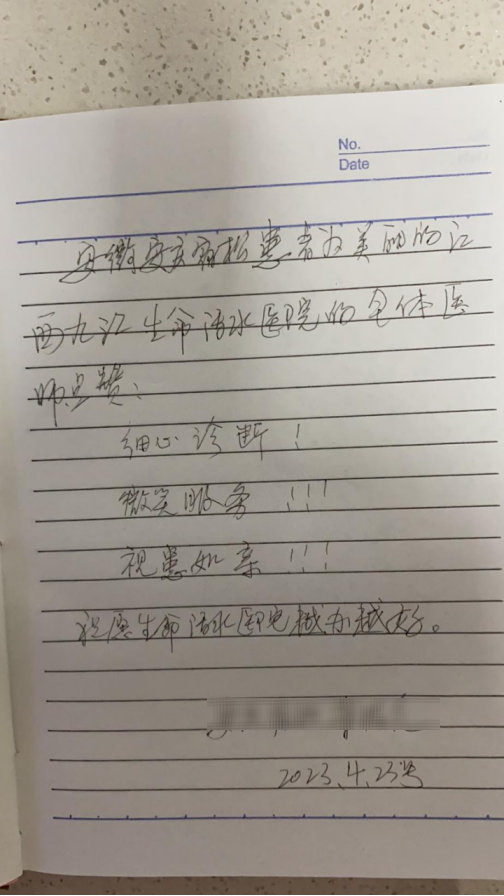 No.
Date
安徽安庆宿松患者为美丽的江
西九江生命活水医院的全体医
师点赞：
细心诊断！
微笑服务！！！
视患如亲！！！
祝愿生命活水医院越办越好。
2023.4.23号